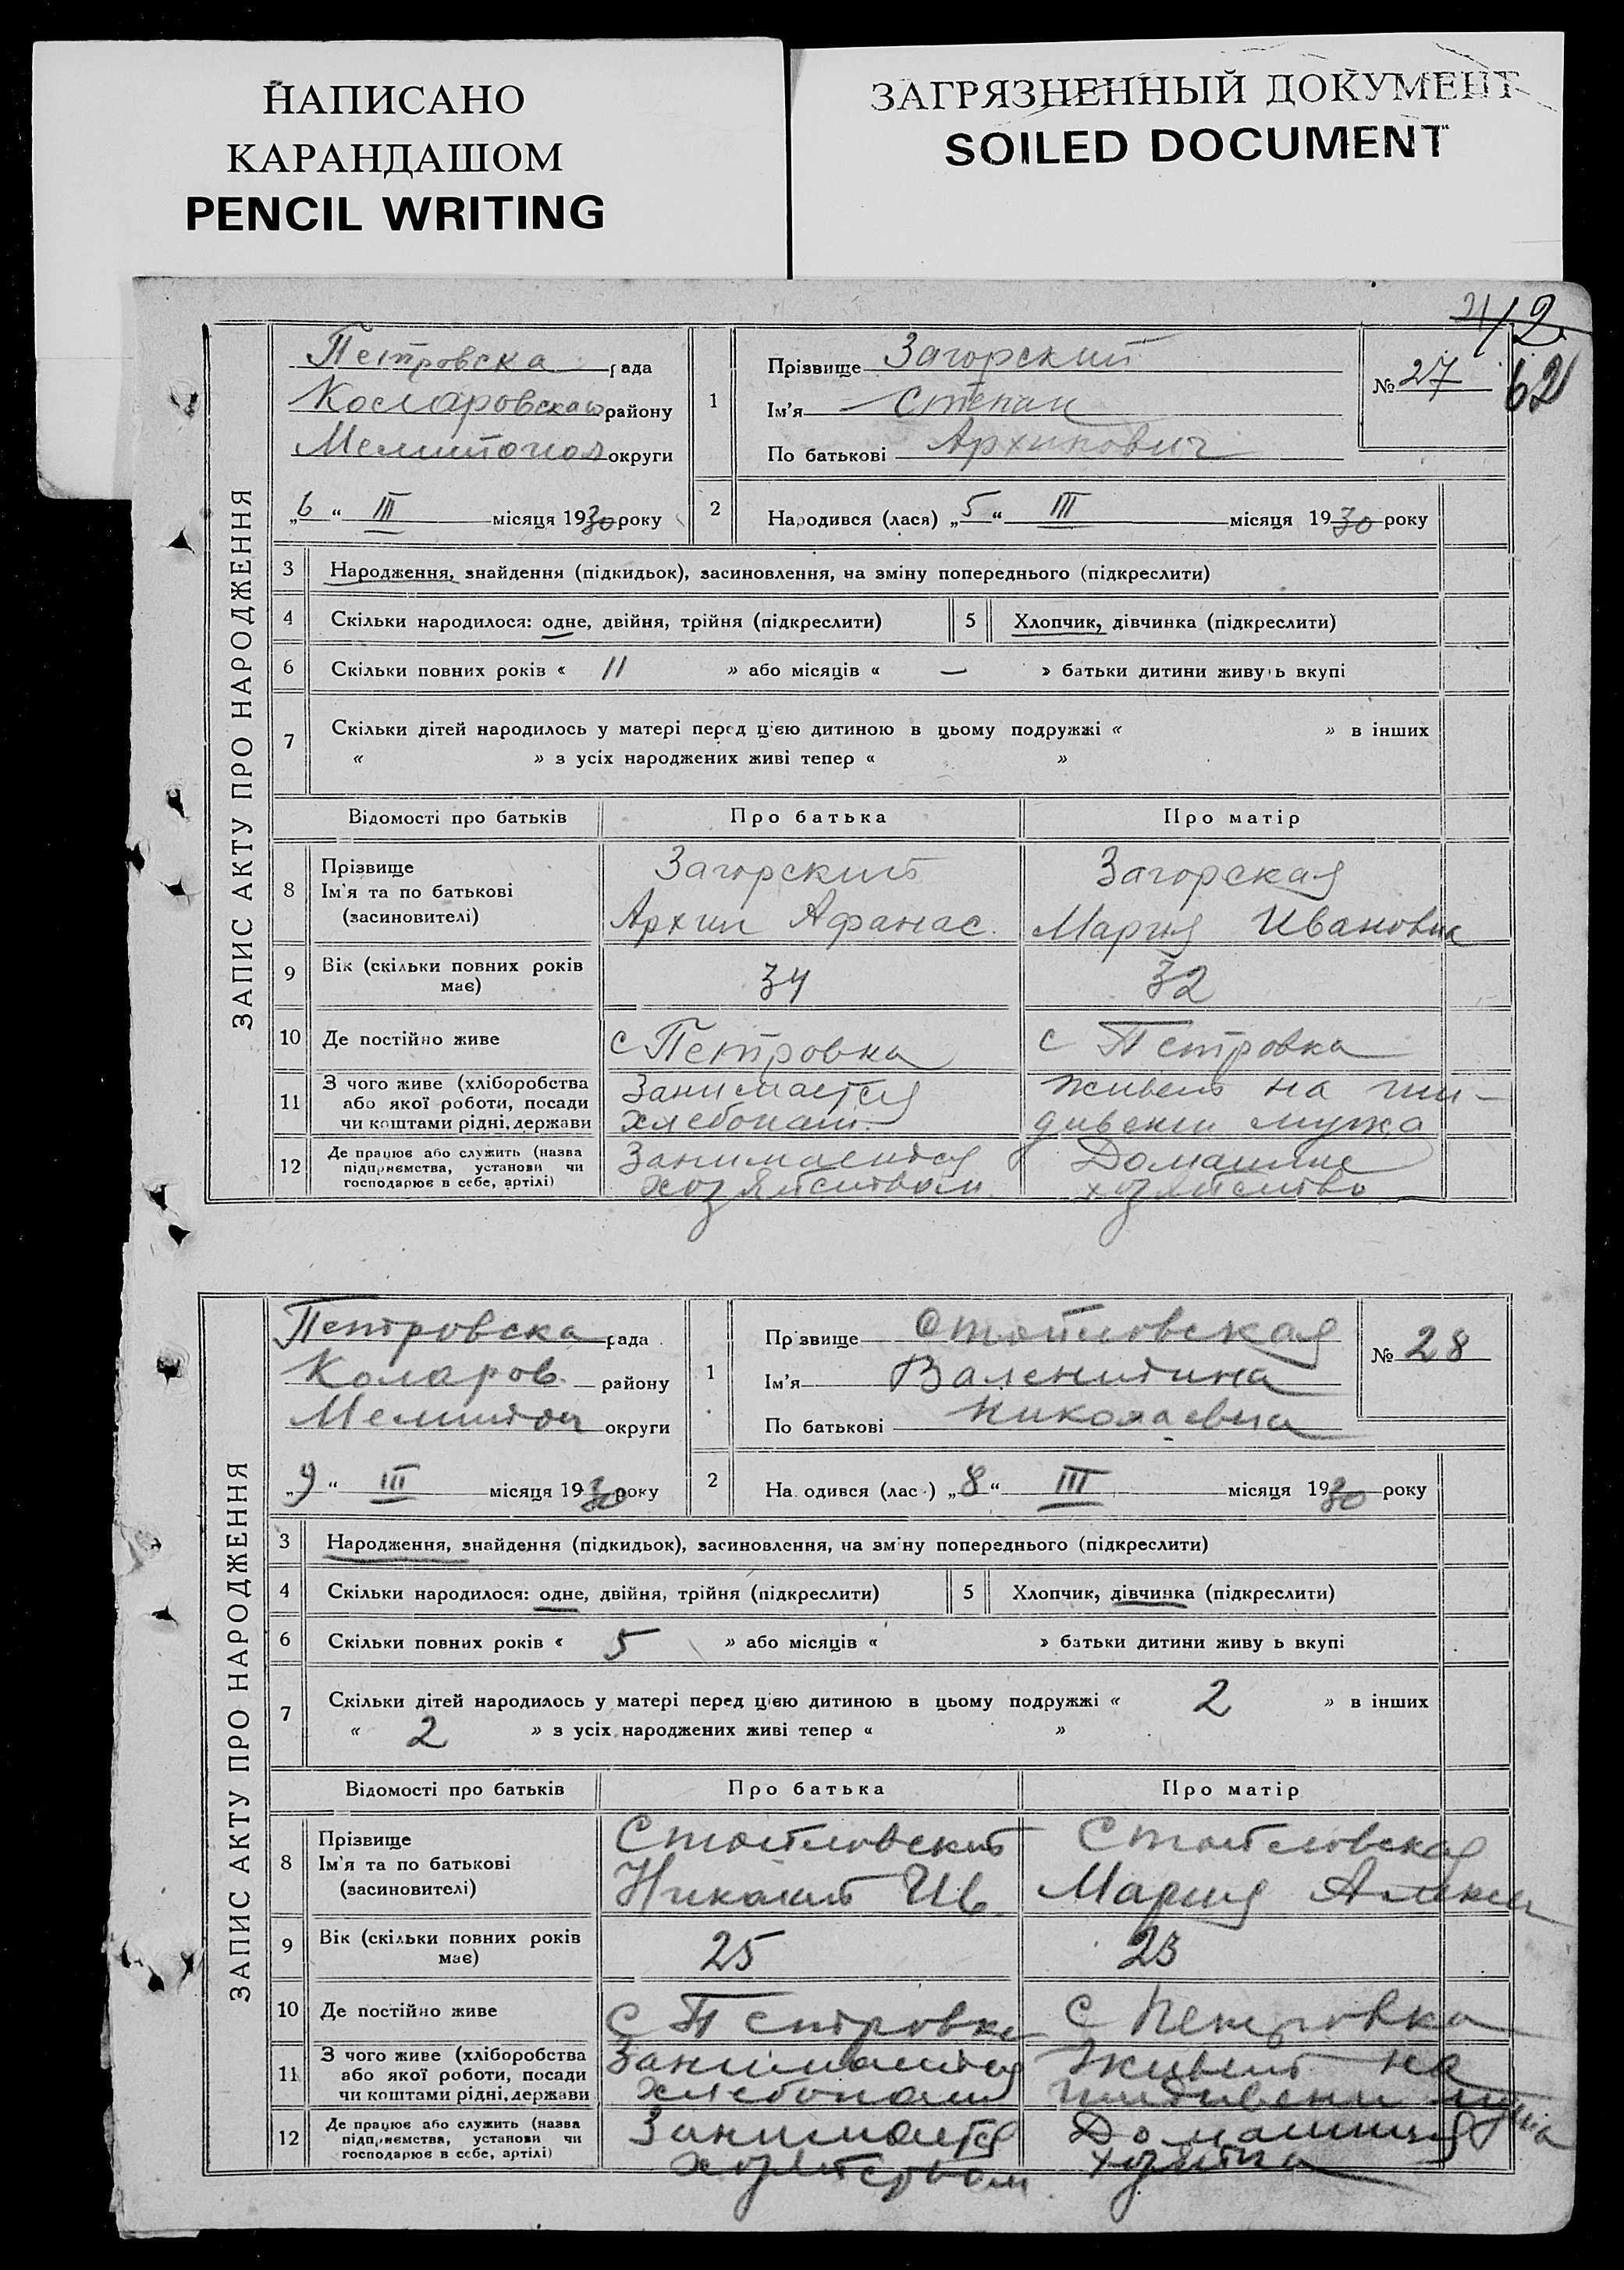 НАПИСАНО
КАРАНДАШОМ
PENCIL WRITING
ЗАГРЯЗНЕННЫЙ ДОКУМЕНТ
SOILED DOCUMENT
62
ЗАПИС АКТУ ПРО НАРОДЖЕННЯ
Петровска рада
Коларовская району
Мелитопол округи
„6“ III місяця 1930 року
1 Прізвище Загорский
Ім'я Степан
По батькові Архипович
№ 27
2 Народився (лася) „5“ III місяця 1930 року
3 Народження, знайдення (підкидьок), засиновлення, на зміну попереднього (підкреслити)
4 Скільки народилося: одне, двійня, трійня (підкреслити) 5 Хлопчик, дівчинка (підкреслити)
6 Скільки повних років « 11 » або місяців « — » батьки дитини живуть вкупі
7 Скільки дітей народилось у матері перед цією дитиною в цьому подружжі « » в інших
« » з усіх народжених живі тепер « »
Відомості про батьків Про батька Про матір
8 Прізвище Загорский Загорская
Ім'я та по батькові
(засиновителі) Архип Афанас. Мария Ивановна
9 Вік (скільки повних років має) 34 32
10 Де постійно живе с Петровка с Петровка
11 З чого живе (хліборобства Занимается живет на иж-
або якої роботи, посади
чи коштами рідні, держави хлебопаш. дивении мужа
12 Де працює або служить (назва Занимается Домашнее
підприємства, установи чи
господарює в себе, артілі) хозяйством хозяйство
ЗАПИС АКТУ ПРО НАРОДЖЕННЯ
Петровска рада
Коларов. району
Мелитоп округи
„9“ III місяця 1930 року
1 Прізвище Стойловская
Ім'я Валентина
По батькові Николаевна
№ 28
2 Народився (лася) „8“ III місяця 1930 року
3 Народження, знайдення (підкидьок), засиновлення, на зміну попереднього (підкреслити)
4 Скільки народилося: одне, двійня, трійня (підкреслити) 5 Хлопчик, дівчинка (підкреслити)
6 Скільки повних років « 5 » або місяців « » батьки дитини живуть вкупі
7 Скільки дітей народилось у матері перед цією дитиною в цьому подружжі « 2 » в інших
« 2 » з усіх народжених живі тепер « »
Відомості про батьків Про батька Про матір
8 Прізвище Стойловский Стойловская
Ім'я та по батькові
(засиновителі) Николай Ив. Мария Алексе
9 Вік (скільки повних років має) 25 23
10 Де постійно живе с Петровка с Петровка
11 З чого живе (хліборобства Занимается Живет на
або якої роботи, посади
чи коштами рідні, держави хлебопаш иждивени мужа
12 Де працює або служить (назва Занимается Домашняя
підприємства, установи чи
господарює в себе, артілі) хозяйством хозяйка